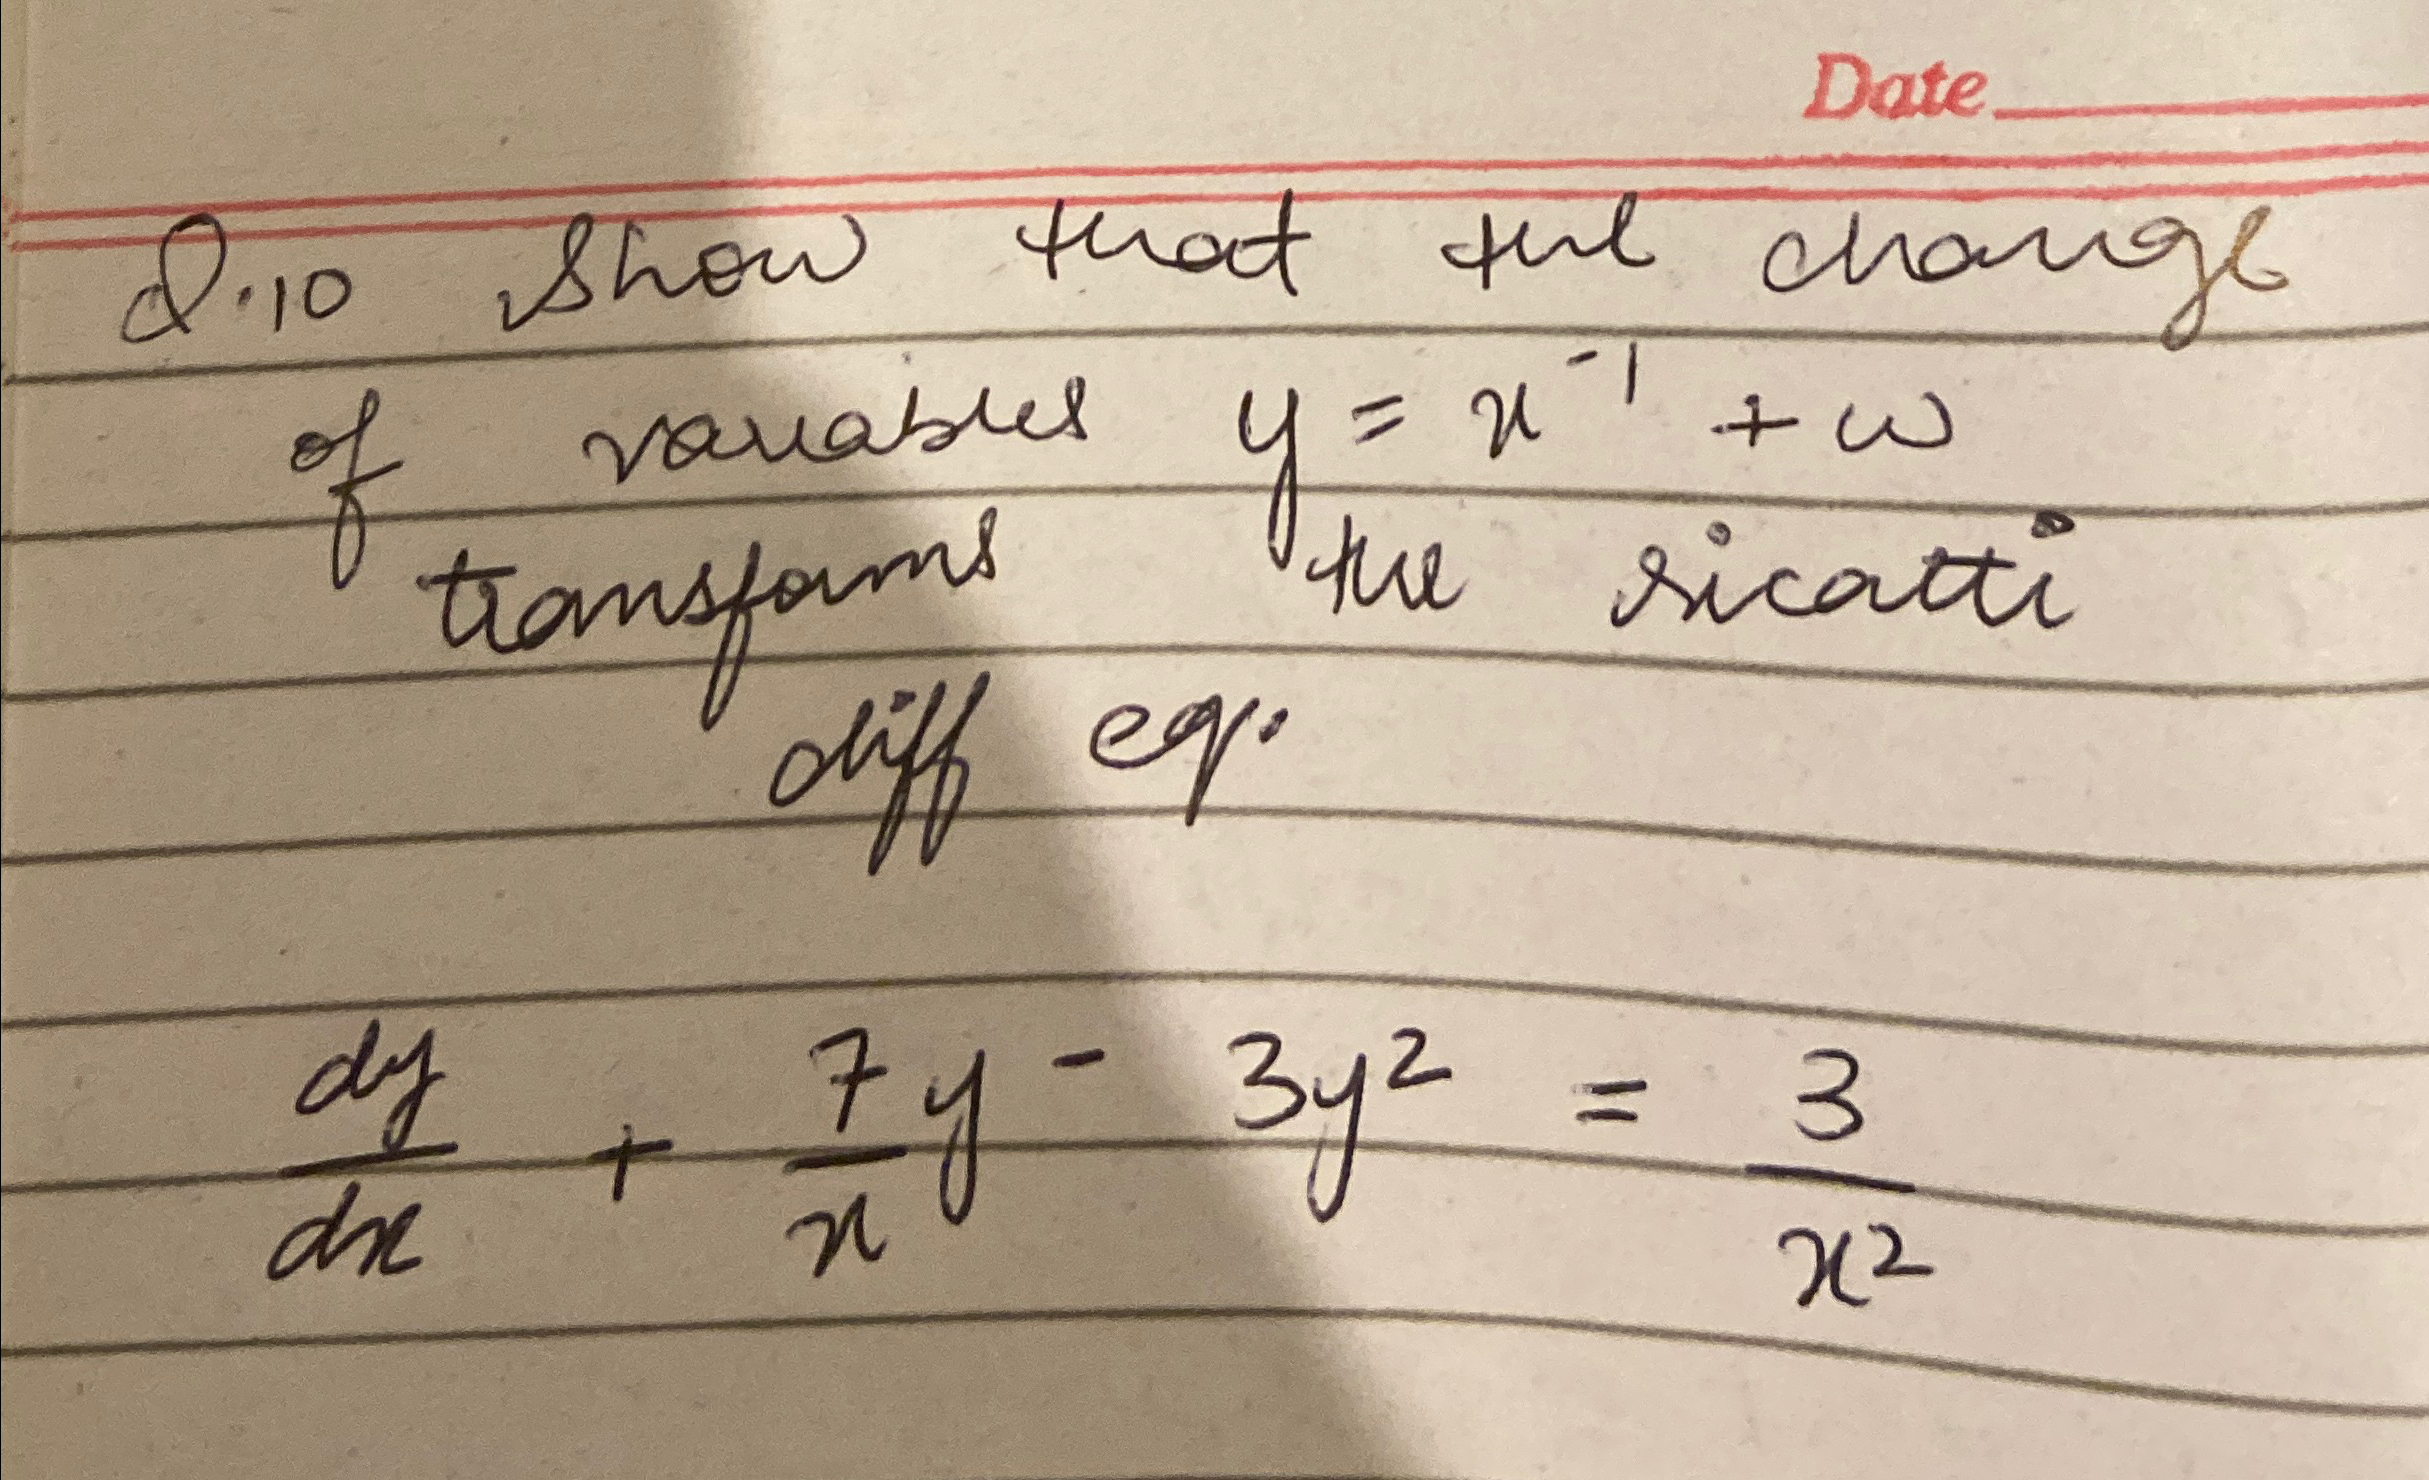 Date
Q.10 Show that the change
of variables y = x⁻¹ + w
transforms the ricatti
diff eq.
dy/dx + 7/x y - 3y² = 3/x²